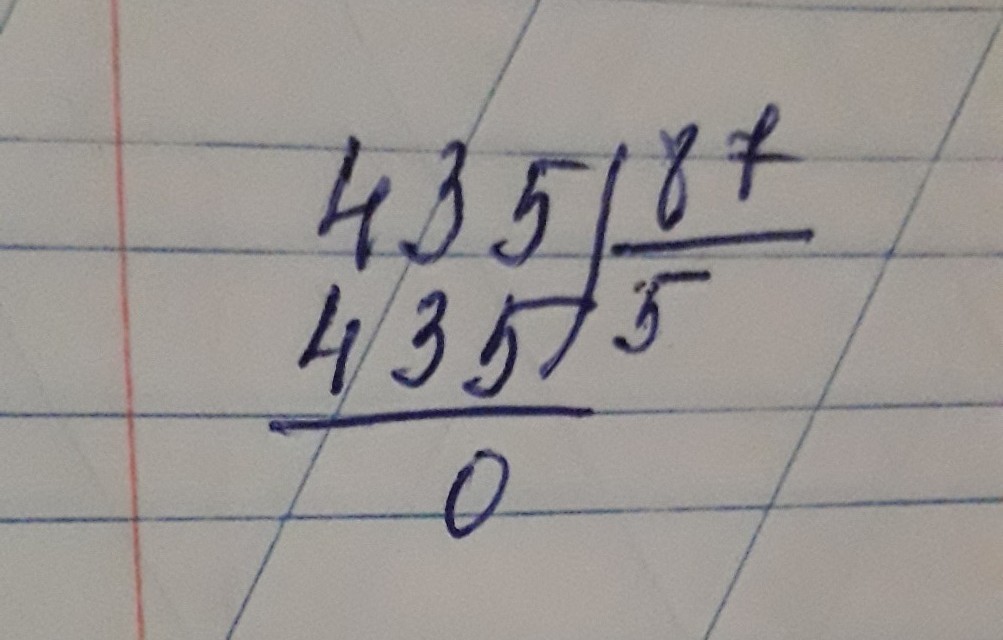 435 87
435 5
0